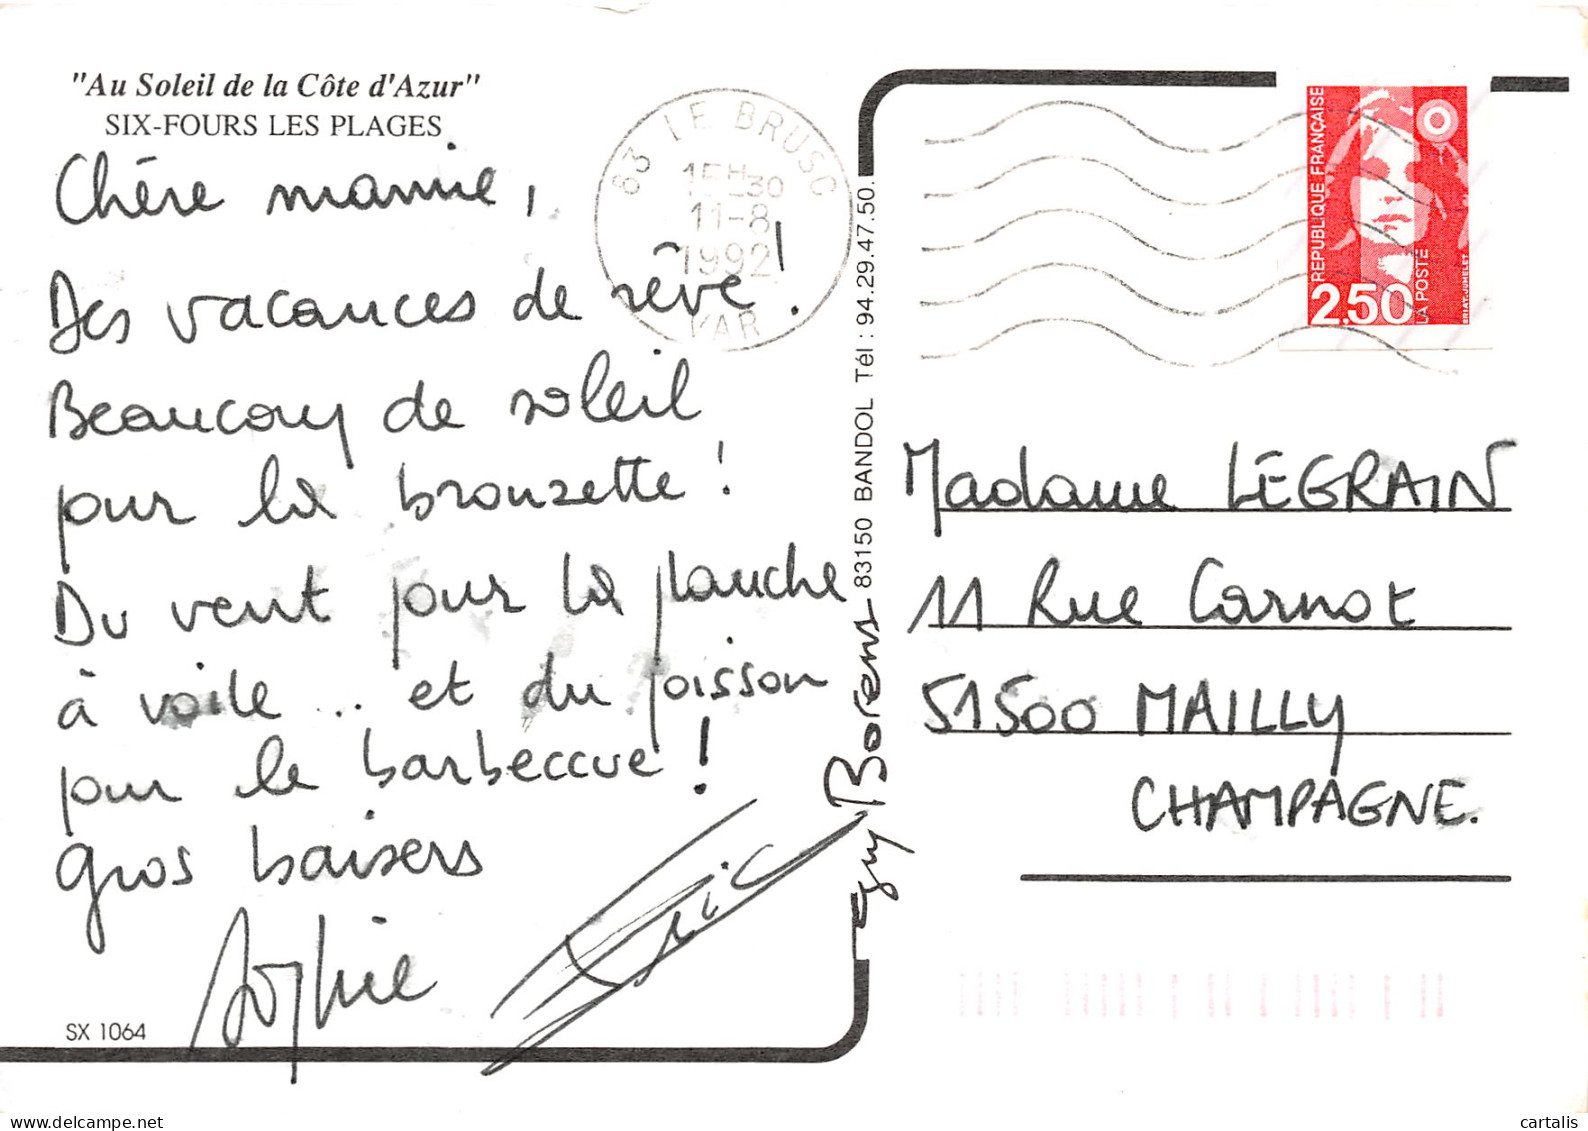 "Au Soleil de la Côte d'Azur"
SIX-FOURS LES PLAGES
Chère mamie,
Des vacances de rêve !
Beaucoup de soleil
pour la bronzette !
Du vent pour la planche
à voile .. et du poisson
pour le barbeccue !
Gros baisers
Sophie
Eric
SX 1064
83 LE BRUSC
15H30
11-8
1992
VAR
Guy Borens 83150 BANDOL Tél : 94.29.47.50.
REPUBLIQUE FRANÇAISE
2,50
LA POSTE
BRIAT-JUMELET
Madame LEGRAIN
11 Rue Carnot
51500 MAILLY
CHAMPAGNE.
delcampe.net
cartalis